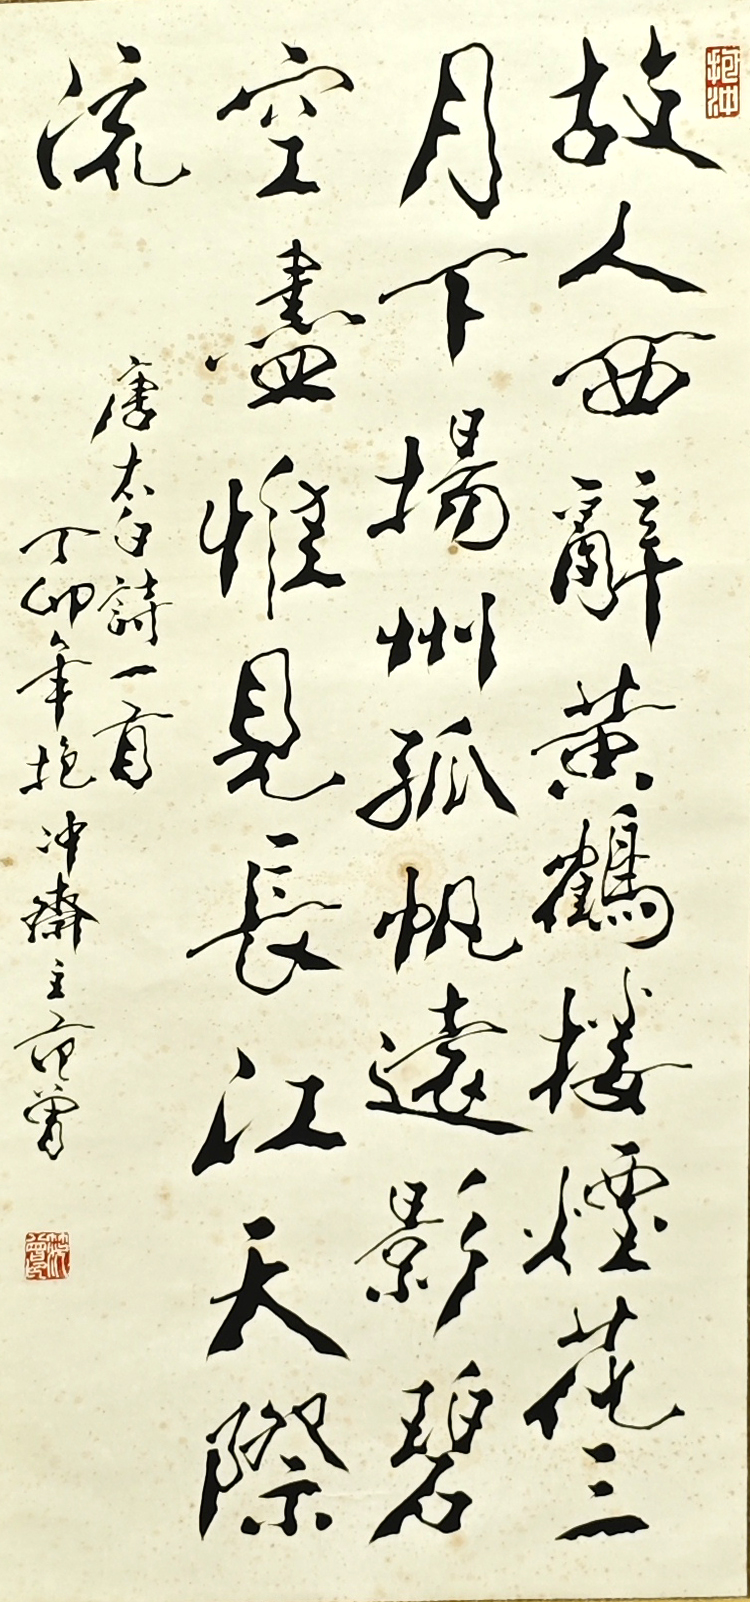 故人西辭黄鶴樓煙花三
月下揚州孤帆遠影碧
空盡惟見長江天際
流
唐太白詩一首
丁卯年抱冲齋主范曾
抱冲
范曾